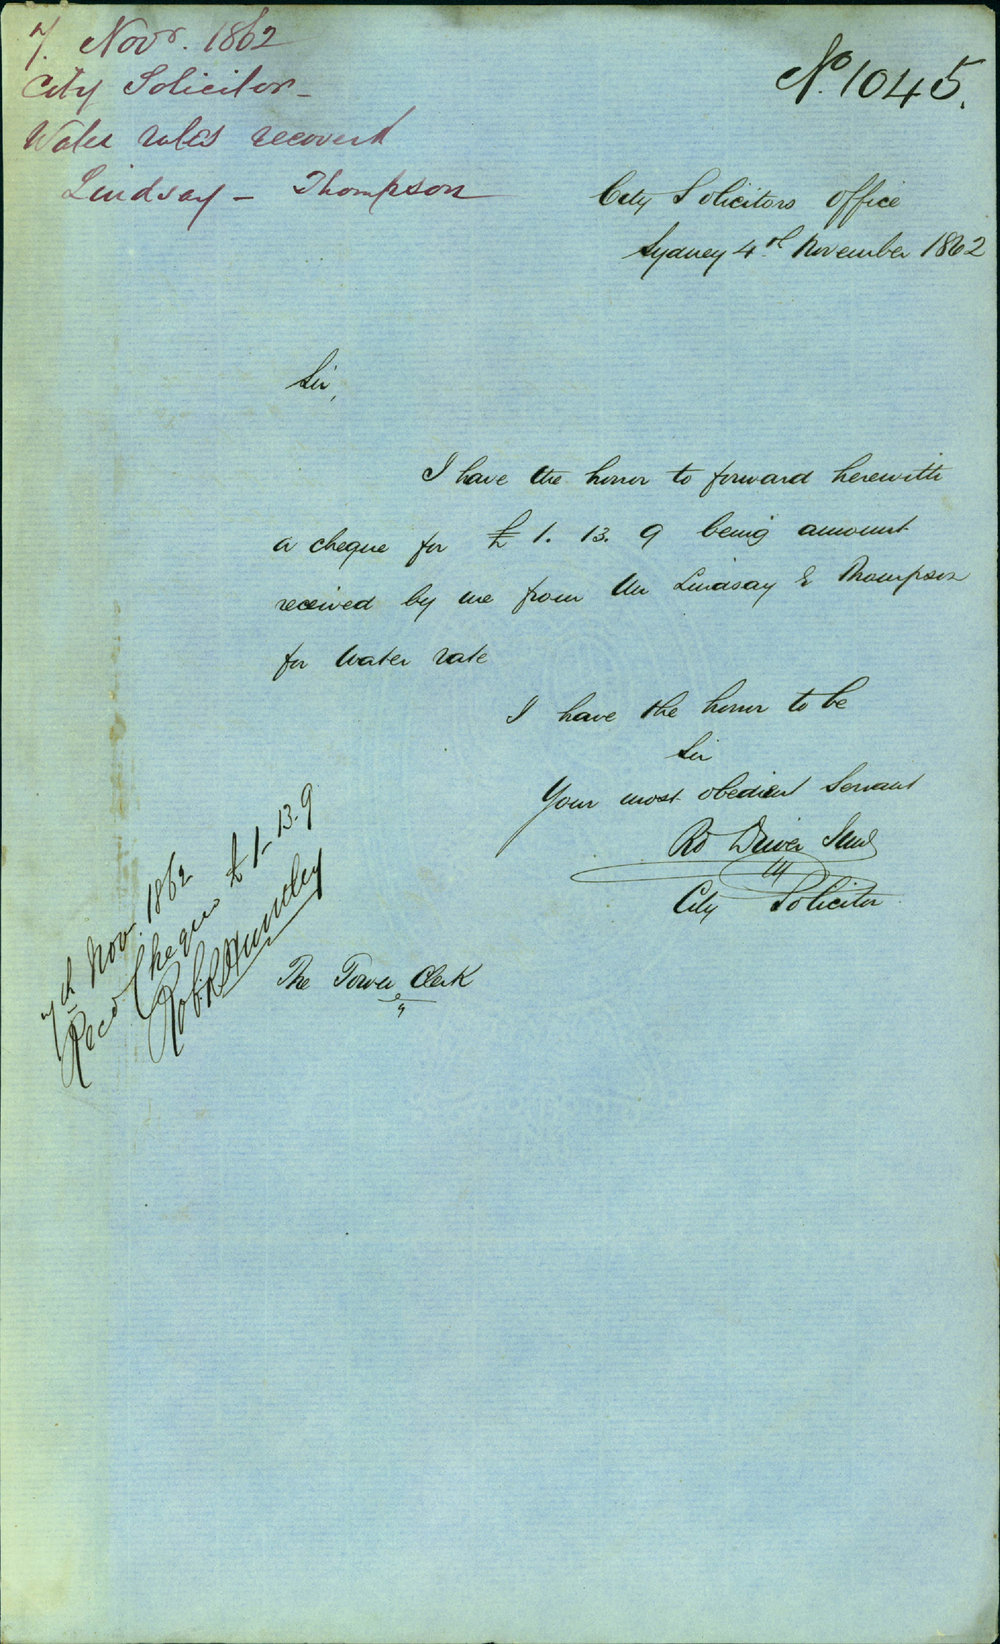 7. Novr. 1862
City Solicitor -
Water rates recoverd
Lindsay - Thompson
No. 1045.
City Solicitors office
Sydney 4th November 1862
Sir,
I have the honor to forward herewith
a cheque for £1. 13. 9 being amount
received by me from Mr Lindsay & Thompson
for Water rate
I have the honor to be
Sir
Your most obedient Servant
Rd Driver Junr
City Solicitor
The Town Clerk
7th Nov. 1862
Recd Cheque £1-13-9